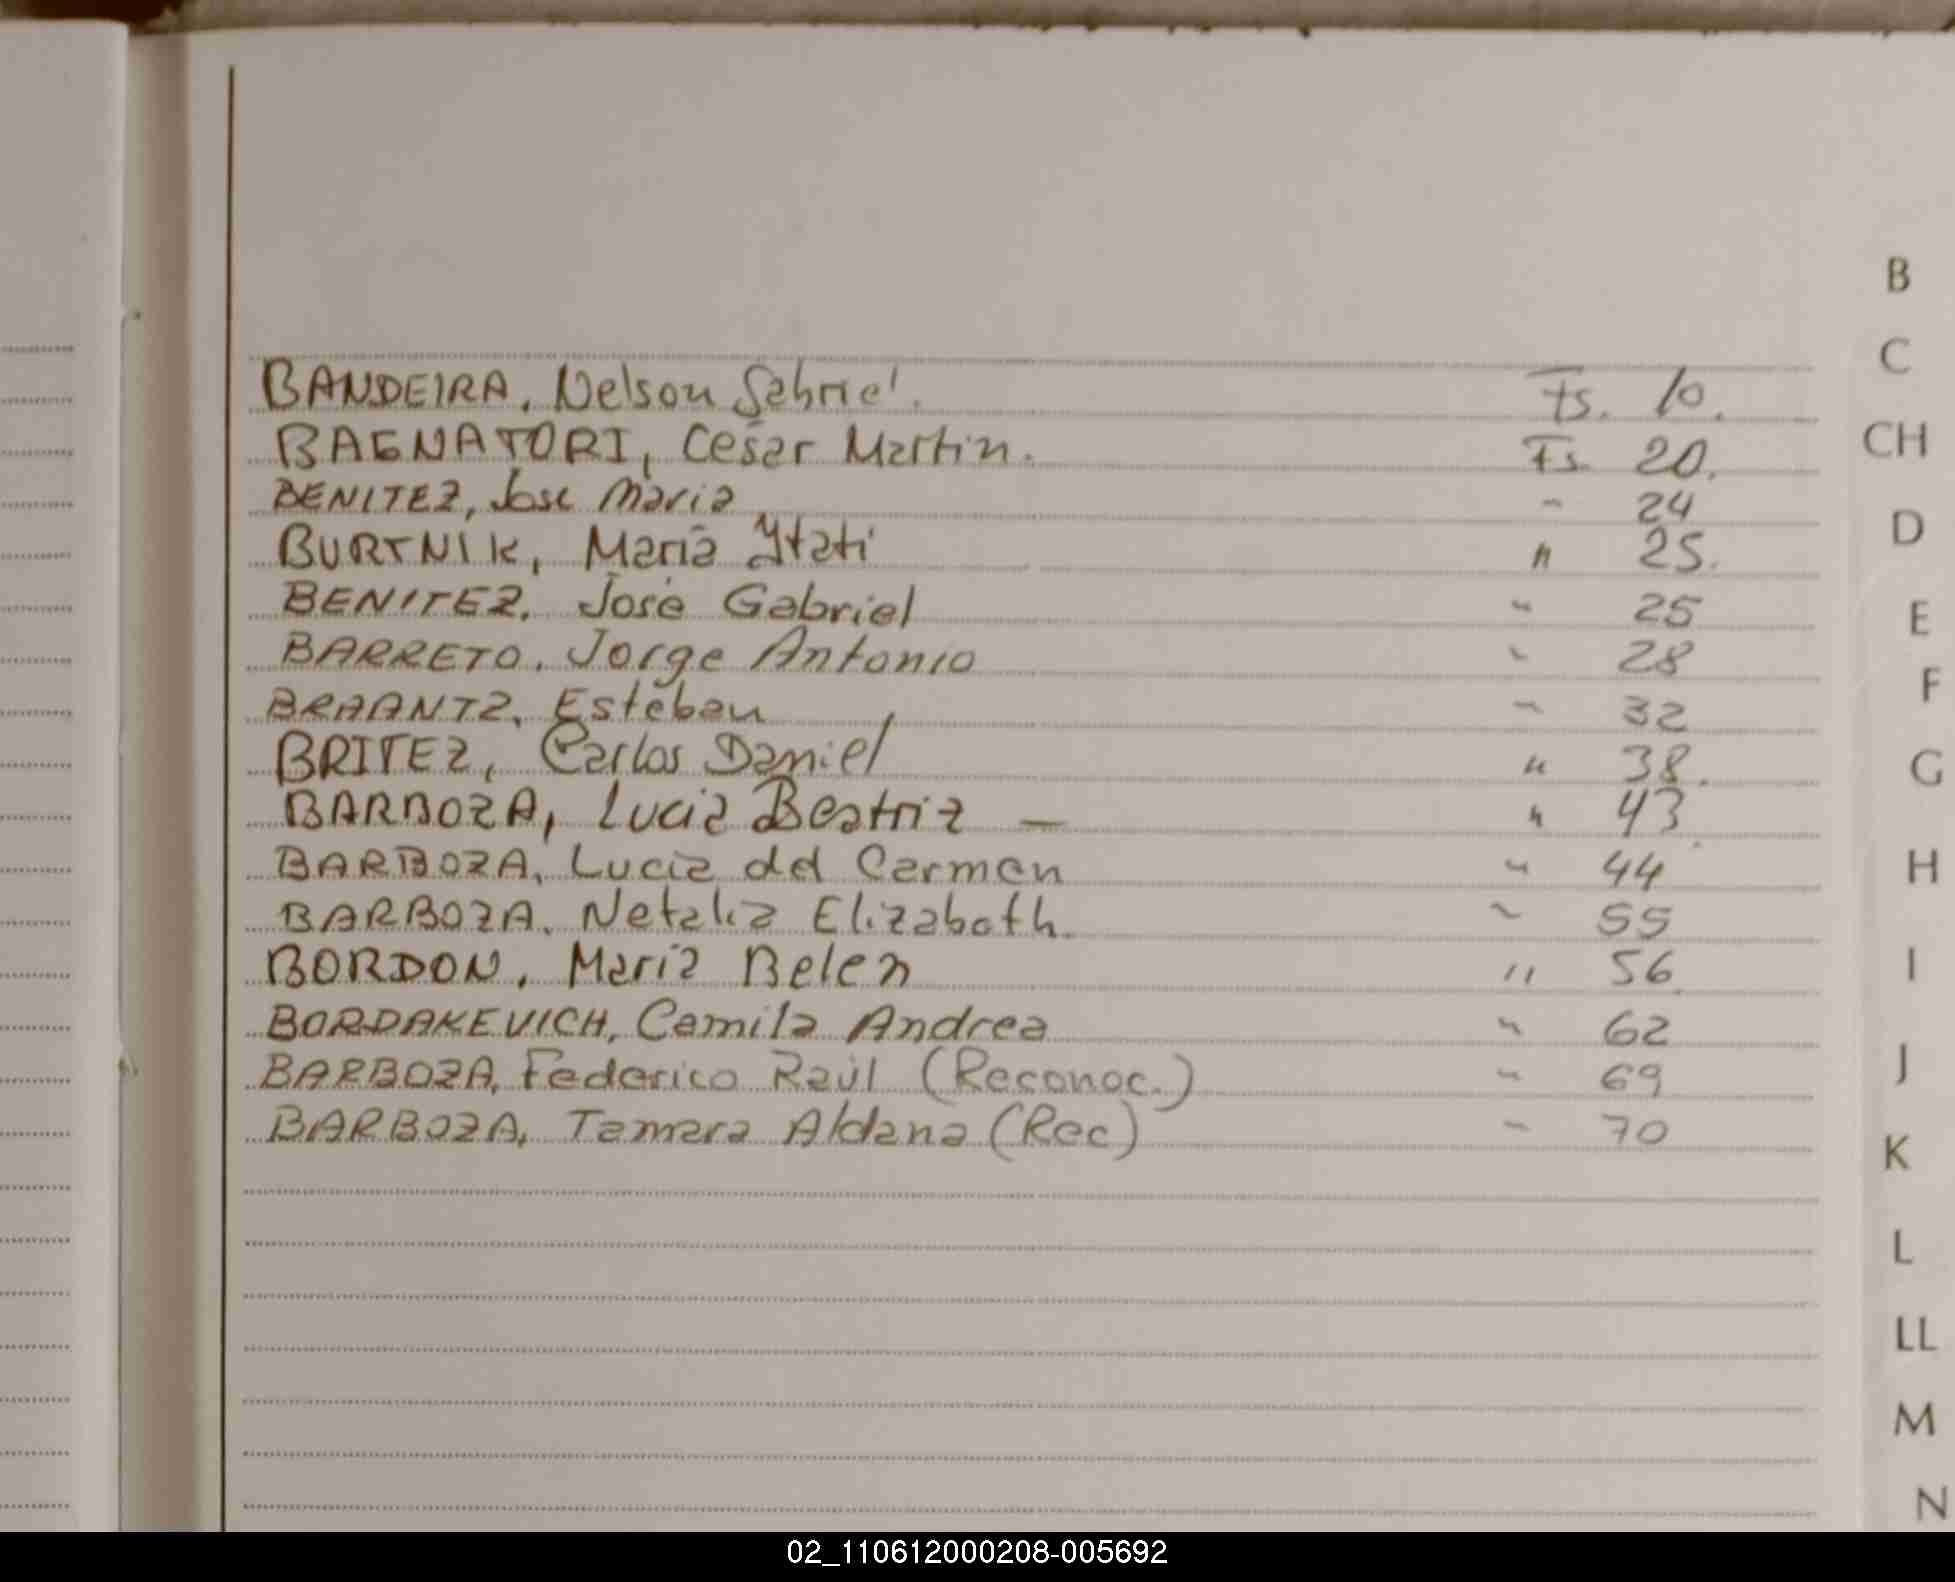 BANDEIRA, Nelson Gabriel. Fs. 10.
BAGNATORI, Cesar Martin. Fs. 20.
BENITEZ, Jose Maria " 24
BURTNIK, Maria Ytati " 25.
BENITEZ, José Gabriel " 25
BARRETO, Jorge Antonio " 28
BRAANTZ, Esteban " 32
BRITEZ, Carlos Daniel " 38.
BARBOZA, Lucia Beatriz — " 43.
BARBOZA, Lucia del Carmen " 44
BARBOZA, Natalia Elizabeth. " 55
BORDON, Maria Belen " 56
BORDAKEVICH, Camila Andrea " 62
BARBOZA, Federico Raúl (Reconoc.) " 69
BARBOZA, Tamara Aldana (Rec) " 70
B
C
CH
D
E
F
G
H
I
J
K
L
LL
M
N
02_110612000208-005692